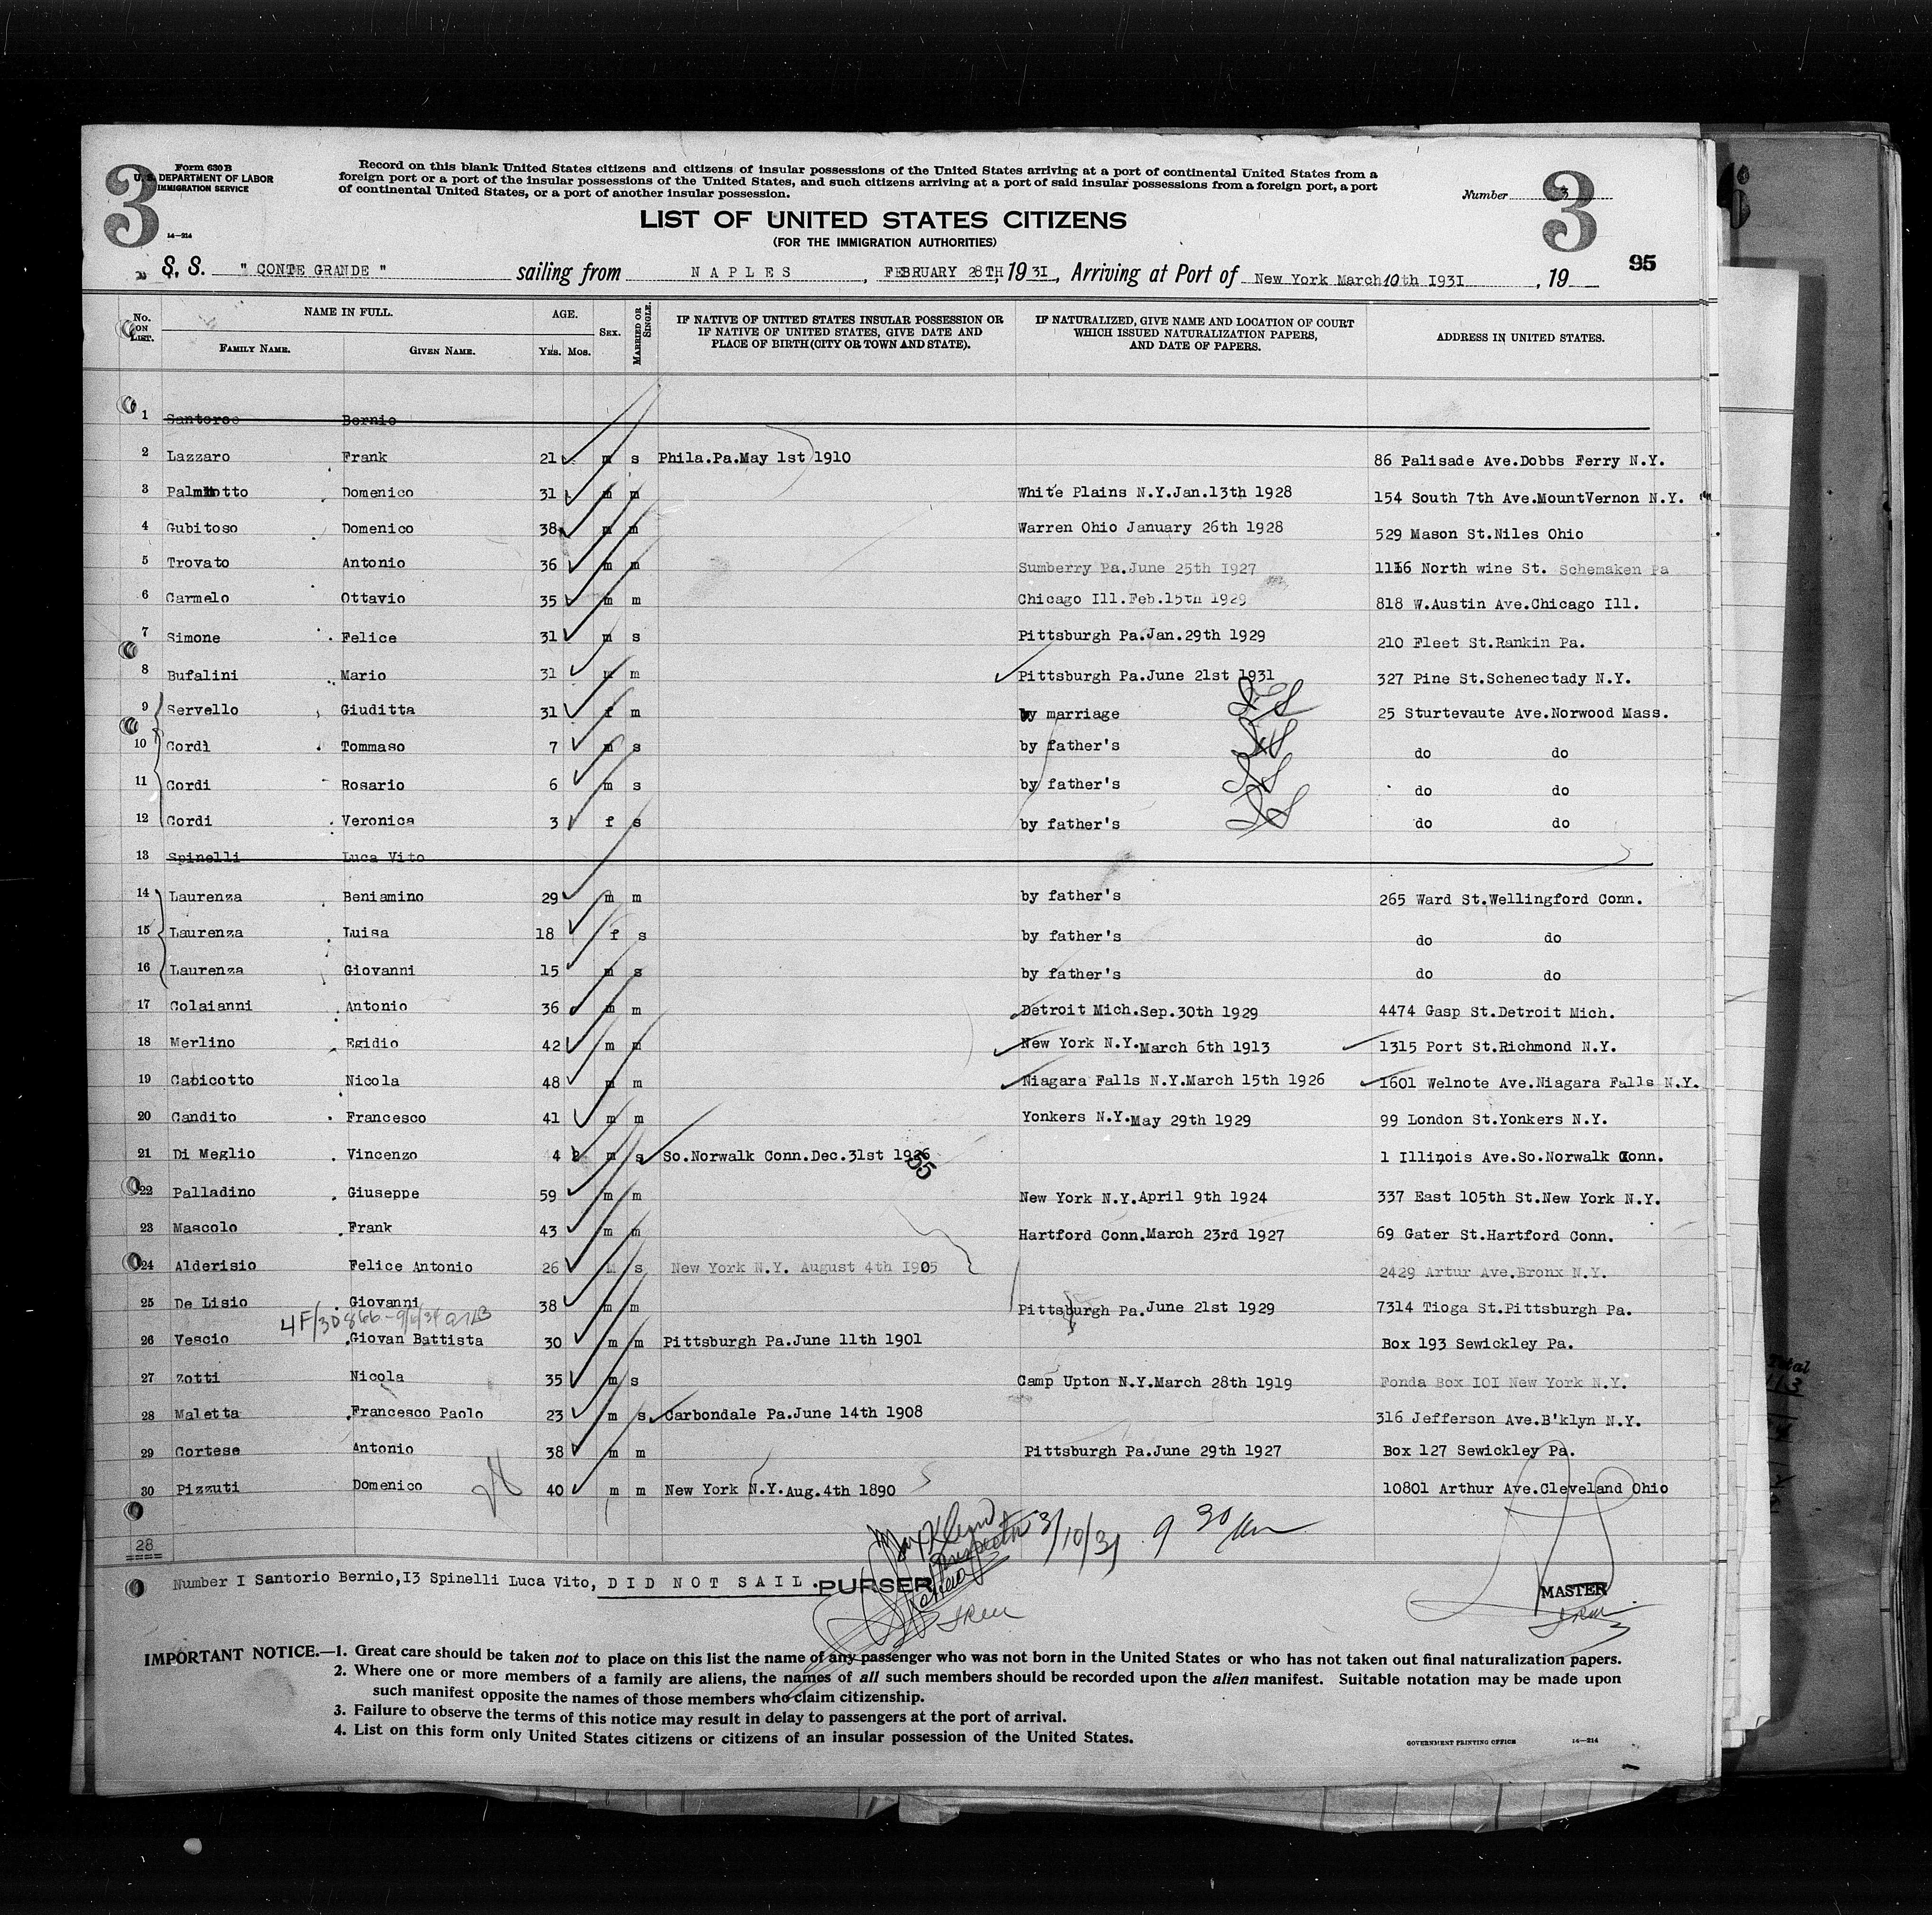 3
Form 630 B
U. S. DEPARTMENT OF LABOR
IMMIGRATION SERVICE
14—214
Record on this blank United States citizens and citizens of insular possessions of the United States arriving at a port of continental United States from a
foreign port or a port of the insular possessions of the United States, and such citizens arriving at a port of said insular possessions from a foreign port, a port
of continental United States, or a port of another insular possession.
Number 3
3
LIST OF UNITED STATES CITIZENS
(FOR THE IMMIGRATION AUTHORITIES)
95
S. S. " CONTE GRANDE " sailing from NAPLES, FEBRUARY 28TH, 1931, Arriving at Port of New York March 10th 1931, 19
No. ON LIST. NAME IN FULL. FAMILY NAME. GIVEN NAME. AGE. YRS. MOS. SEX. MARRIED OR SINGLE. IF NATIVE OF UNITED STATES INSULAR POSSESSION OR IF NATIVE OF UNITED STATES, GIVE DATE AND PLACE OF BIRTH (CITY OR TOWN AND STATE). IF NATURALIZED, GIVE NAME AND LOCATION OF COURT WHICH ISSUED NATURALIZATION PAPERS, AND DATE OF PAPERS. ADDRESS IN UNITED STATES.
1 Santoro Bernio
2 Lazzaro Frank 21 m s Phila.Pa.May 1st 1910 86 Palisade Ave.Dobbs Ferry N.Y.
3 Palmiotto Domenico 31 m m White Plains N.Y.Jan.13th 1928 154 South 7th Ave.MountVernon N.Y.
4 Gubitoso Domenico 38 m m Warren Ohio January 26th 1928 529 Mason St.Niles Ohio
5 Trovato Antonio 36 m m Sumberry Pa.June 25th 1927 1116 North wine St. Schemaken Pa
6 Carmelo Ottavio 35 m m Chicago Ill.Feb.15th 1929 818 W.Austin Ave.Chicago Ill.
7 Simone Felice 31 m s Pittsburgh Pa.Jan.29th 1929 210 Fleet St.Rankin Pa.
8 Bufalini Mario 31 m m Pittsburgh Pa.June 21st 1931 327 Pine St.Schenectady N.Y.
9 Servello Giuditta 31 f m by marriage 25 Sturtevaute Ave.Norwood Mass.
10 Cordi Tommaso 7 m s by father's do do
11 Cordi Rosario 6 m s by father's do do
12 Cordi Veronica 3 f s by father's do do
13 Spinelli Luca Vito
14 Laurenza Beniamino 29 m m by father's 265 Ward St.Wellingford Conn.
15 Laurenza Luisa 18 f s by father's do do
16 Laurenza Giovanni 15 m s by father's do do
17 Colaianni Antonio 36 m m Detroit Mich.Sep.30th 1929 4474 Gasp St.Detroit Mich.
18 Merlino Egidio 42 m m New York N.Y.March 6th 1913 1315 Port St.Richmond N.Y.
19 Cabicotto Nicola 48 m m Niagara Falls N.Y.March 15th 1926 1601 Welnote Ave.Niagara Falls N.Y.
20 Candito Francesco 41 m m Yonkers N.Y.May 29th 1929 99 London St.Yonkers N.Y.
21 Di Meglio Vincenzo 4 m s So.Norwalk Conn.Dec.31st 1926 1 Illinois Ave.So.Norwalk Conn.
55
22 Palladino Giuseppe 59 m m New York N.Y.April 9th 1924 337 East 105th St.New York N.Y.
23 Mascolo Frank 43 m m Hartford Conn.March 23rd 1927 69 Gater St.Hartford Conn.
24 Alderisio Felice Antonio 26 M s New York N.Y. August 4th 1905 2429 Artur Ave.Bronx N.Y.
25 De Lisio Giovanni 38 m m Pittsburgh Pa.June 21st 1929 7314 Tioga St.Pittsburgh Pa.
26 Vescio Giovan Battista 30 m m Pittsburgh Pa.June 11th 1901 Box 193 Sewickley Pa.
27 Zotti Nicola 35 m s Camp Upton N.Y.March 28th 1919 Fonda Box 101 New York N.Y.
28 Maletta Francesco Paolo 23 m s Carbondale Pa.June 14th 1908 316 Jefferson Ave.B'klyn N.Y.
29 Cortese Antonio 38 m m Pittsburgh Pa.June 29th 1927 Box 127 Sewickley Pa.
30 Pizzuti Domenico 40 m m New York N.Y.Aug.4th 1890 10801 Arthur Ave.Cleveland Ohio
3/10/31 9 30 am
28
Number I Santorio Bernio,I3 Spinelli Luca Vito, DID NOT SAIL. PURSER
MASTER
IMPORTANT NOTICE.—1. Great care should be taken not to place on this list the name of any passenger who was not born in the United States or who has not taken out final naturalization papers.
2. Where one or more members of a family are aliens, the names of all such members should be recorded upon the alien manifest. Suitable notation may be made upon
such manifest opposite the names of those members who claim citizenship.
3. Failure to observe the terms of this notice may result in delay to passengers at the port of arrival.
4. List on this form only United States citizens or citizens of an insular possession of the United States.
GOVERNMENT PRINTING OFFICE 14—214
Total
113